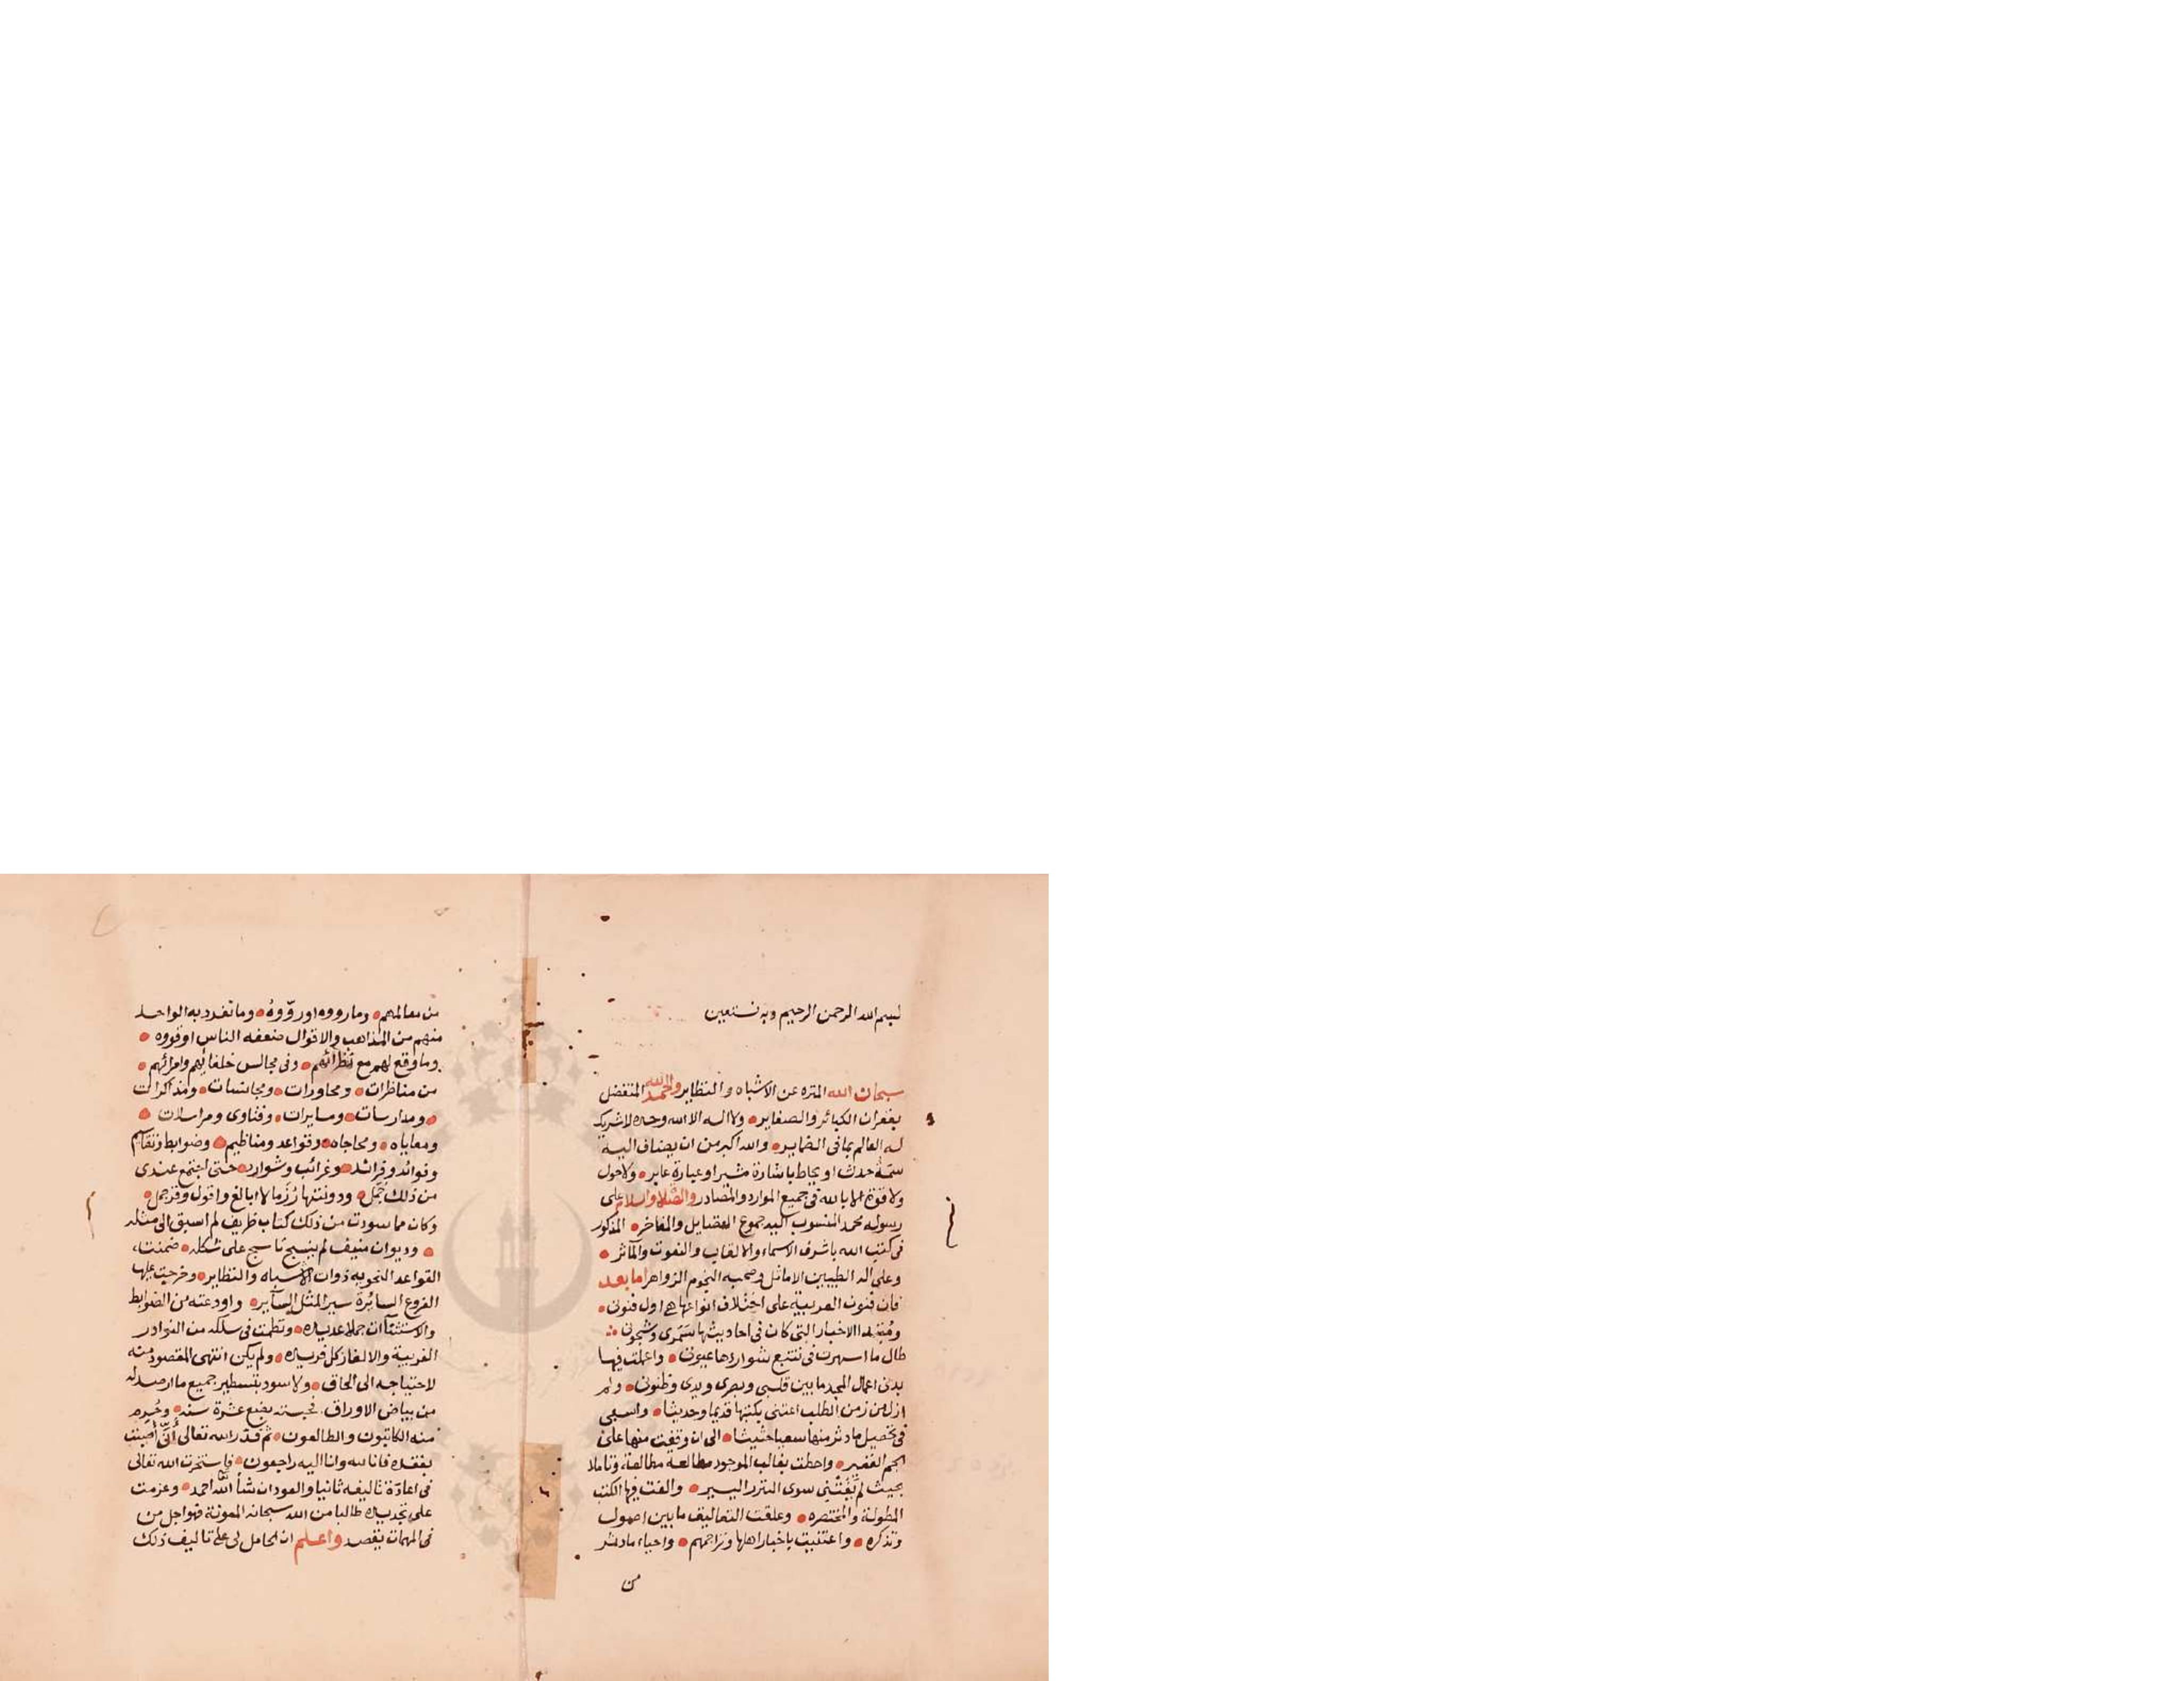 بسم الله الرحمن الرحيم وبه نستعين
سبحان الله المنزه عن الاشباه والنظاير والحمد لله المتفضل
بغفران الكبائر والصغاير ولا اله الا الله وحده لا شريك
له العالم بما في الضماير والله اكبر من ان يضاف اليه
سمة حدث او يحاط باشارة مشير او عبارة عابر ولا حول
ولا قوة الا بالله في جميع الموارد والمصادر والصلاة والسلام على
رسوله محمد المنسوب اليه جموع الفضايل والمفاخر المذكور
في كتب الله باشرف الاسماء والالقاب والنعوت والمآثر
وعلى اله الطيبين الاماثل وصحبه النجوم الزواهر اما بعد
فان فنون العربية على اختلاف انواعها هي اول فنوني
ومبتدا الاخبار التي كان في احاديثها سمري وشجوني
طال ما اسهرت في تتبع شواردها عيوني واعملت فيها
بدني اعمال المجد ما بين قلبي وبصري ويدي وظنوني ولم
ازل من زمن الطلب اعتني بكتبها قديما وحديثا واسعى
في تحصيل ما دثر منها سعيا حثيثا الى ان وقفت منها على
الجم الغفير واحطت بغالب الموجود مطالعة وتاملا
بحيث لم يفتني سوى النزر اليسير والفت فيها الكتب
المطولة والمختصره وعلقت التعاليق ما بين اصول
وتذكره واعتنيت باخبار اهلها وتراجمهم واحياء ما دثر
من
من معالمهم وما رووه او روّوه وما تفرد به الواحد
منهم من المذاهب والاقوال ضعفه الناس او قووه
وما وقع لهم مع نظرائهم وفي مجالس خلفائهم وامرائهم
من مناظرات ومحاورات ومجالسات ومذاكرات
ومدارسات ومسايرات وفتاوى ومراسلات
ومعاياه ومحاجاه وقواعد ومناظيم وضوابط وتقاسيم
وفوائد وفرائد وغرائب وشوارد حتى اجتمع عندي
من ذلك جمل ودونتها رزما لا ابالغ واقول وقر جمل
وكان مما سودت من ذلك كتاب ظريف لم اسبق الى مثله
وديوان منيف لم ينسج ناسج على شكله ضمنته
القواعد النحوية ذوات الاشباه والنظاير وخرجت عليها
الفروع السائرة سير المثل السآير واودعته من الضوابط
والاستثناآت جملا عديده ونظمت في سلكه من النوادر
الغريبة والالغاز كل فريده ولم يكن انتهى المقصود منه
لاحتياجه الى الحاق ولا سود بتسطير جميع ما ارصد له
من بياض الاوراق فحبسته بضع عشرة سنه وحُرِم
منه الكاتبون والطالعون ثم قدر الله تعالى أَنّي أُصبت
بفقده فانا لله وانا اليه راجعون فاستخرت الله تعالى
في اعادة تاليفه ثانيا والعود ان شاء الله احمد وعزمت
على تجديده طالبا من الله سبحانه المعونة فهو اجل من
في المهمات يقصد واعلم ان الحامل لي على تاليف ذلك